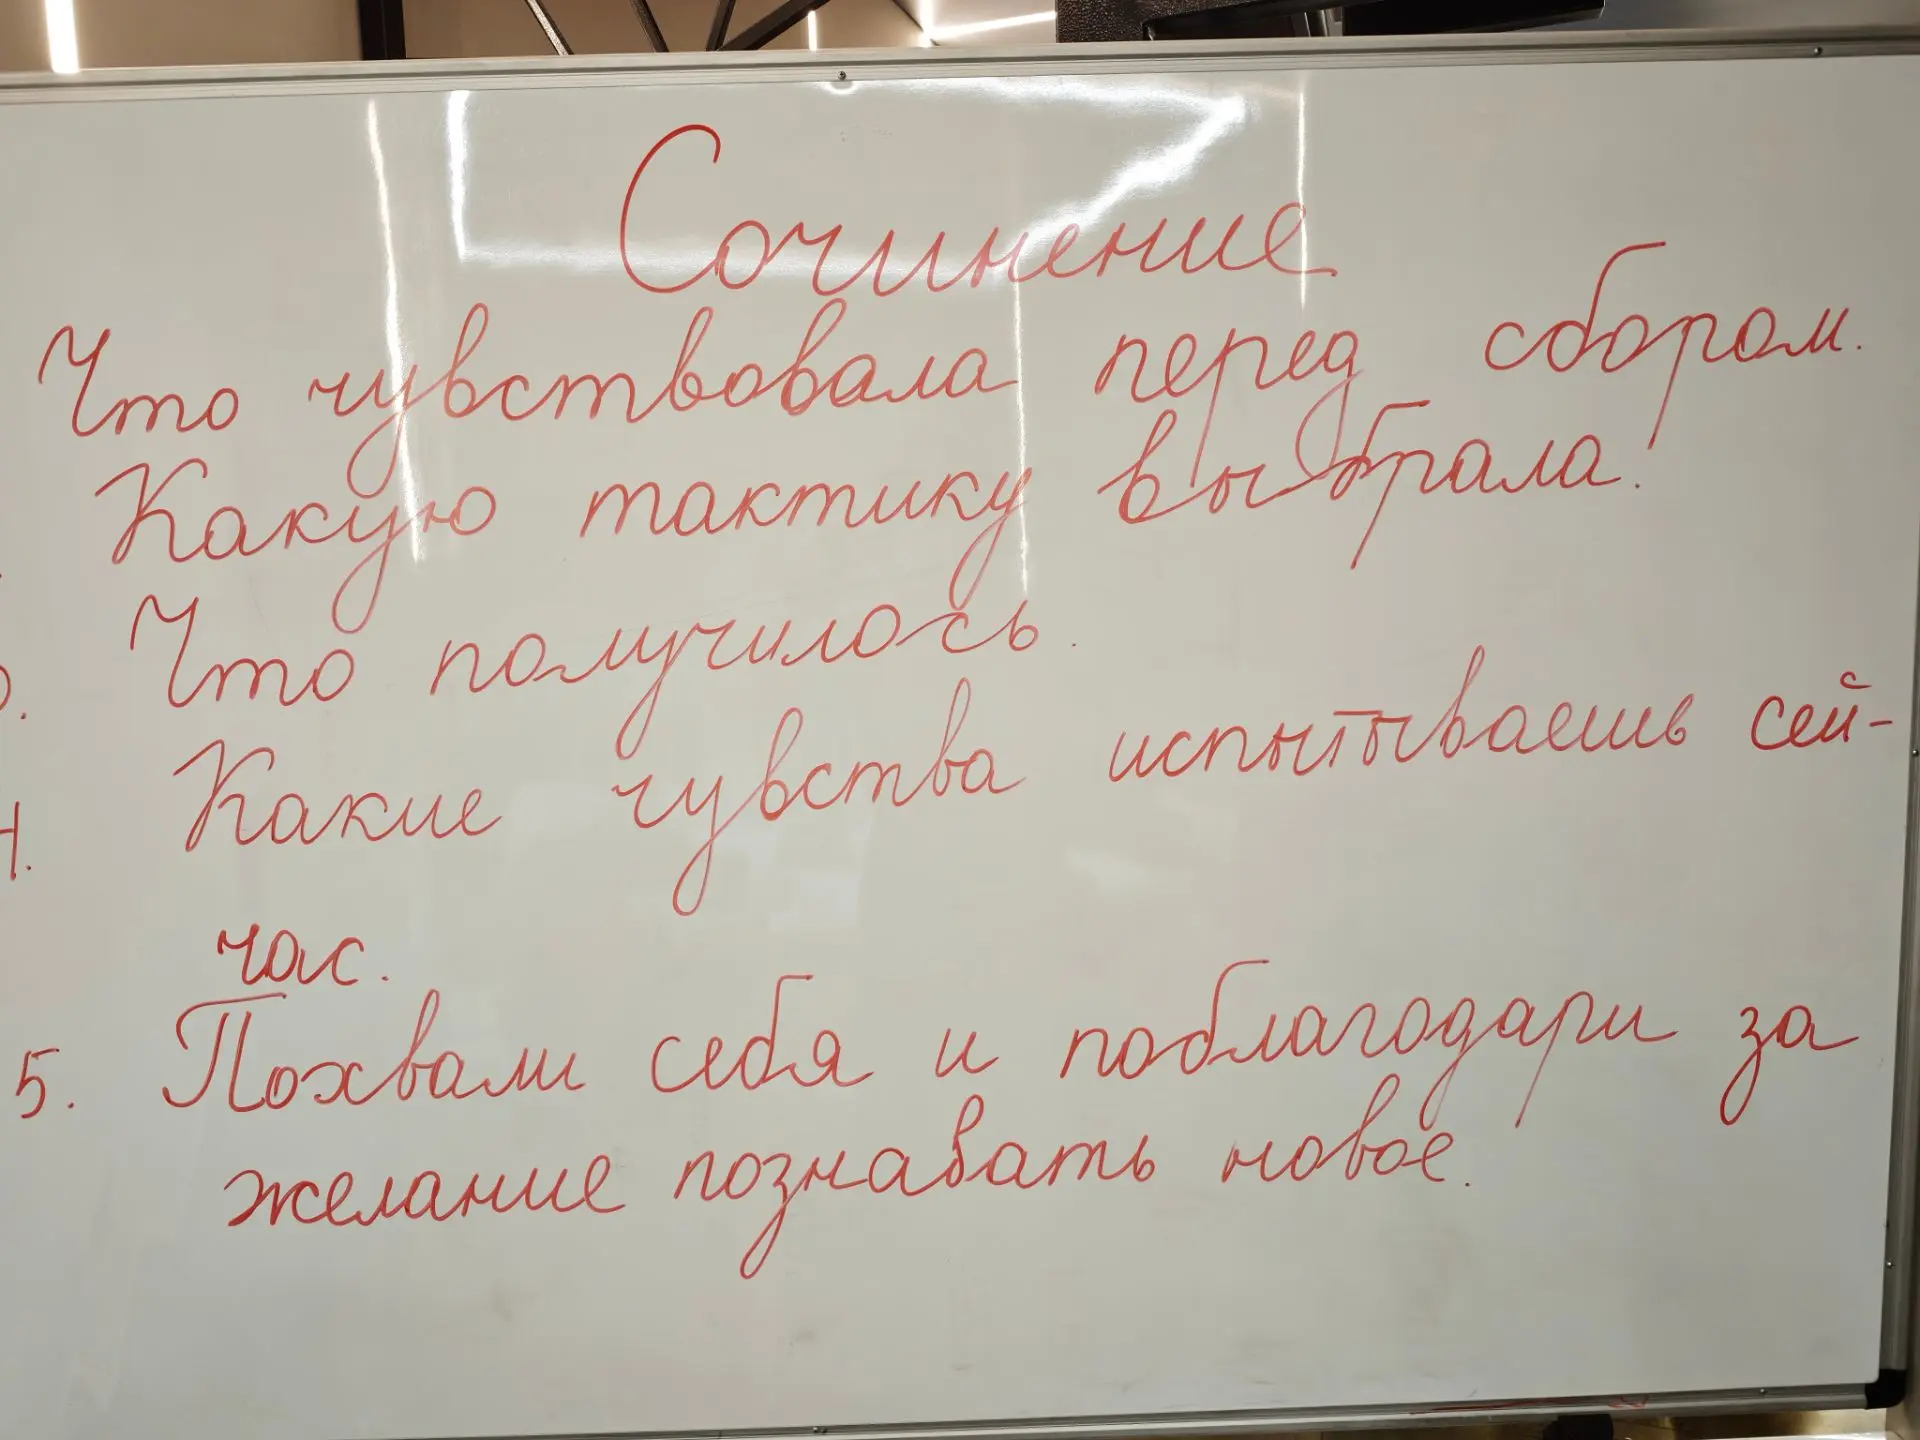 Сочинение
Что чувствовала перед сбором.
Какую тактику выбрала.
3. Что получилось.
4. Какие чувства испытываешь сей-
час.
5. Похвали себя и поблагодари за
желание познавать новое.